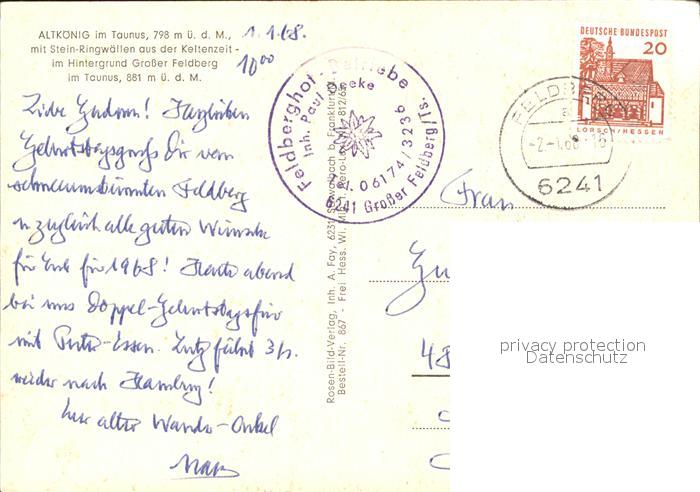 ALTKÖNIG im Taunus, 798 m ü. d. M.,
mit Stein-Ringwällen aus der Keltenzeit -
im Hintergrund Großer Feldberg
im Taunus, 881 m ü. d. M.
1.1.68.
10⁰⁰
Liebe Gudrun! Herzlichen
Geburtstagsgruß Dir vom
schneeumstürmten Feldberg
u. zugleich alle guten Wünsche
für Euch für 1968! Heute abend
bei uns Doppel-Geburtstagsfeier
mit Puter-Essen. Lutz fährt 3/1.
wieder nach Hamburg!
Euer alter Wander-Onkel
Max
Feldberghof-Betriebe
Inh. Paul
Tel. 06174/3236
6241 Großer Feldberg/Ts.
Rosen-Bild-Verlag, Inh. A. Fay, 6231 Schwalbach b. Frankfurt
Bestell-Nr. 867 - Frei Hess. Wi. Mi. 812/65
DEUTSCHE BUNDESPOST
20
LORSCH/HESSEN
FELDBERG
-2.-1.68-16
6241
Frau
Gu
48
privacy protection
Datenschutz